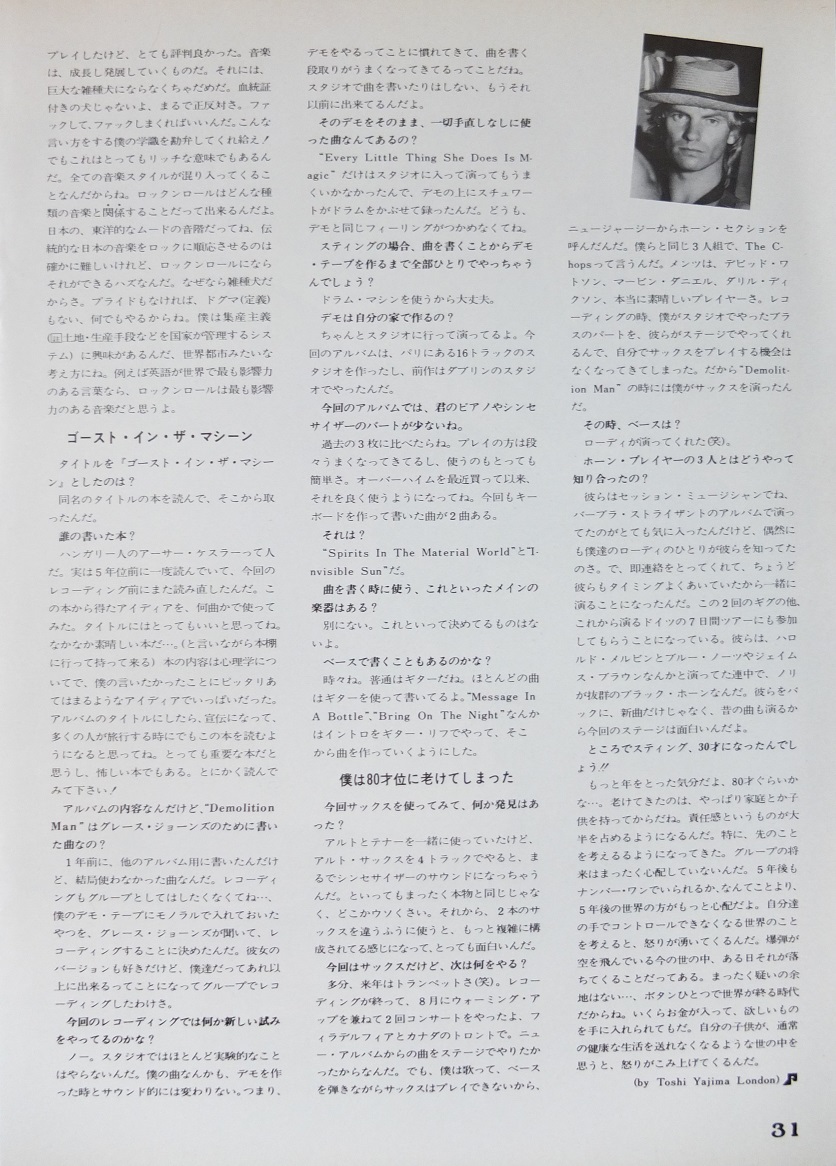 プレイしたけど、とても評判良かった。音楽
は、成長し発展していくものだ。それには、
巨大な雑種犬にならなくちゃだめだ。血統証
付きの犬じゃないよ、まるで正反対さ。ファ
ックして、ファックしまくればいいんだ。こんな
言い方をする僕の学識を勘弁してくれ給え！
でもこれはとってもリッチな意味でもあるん
だ。全ての音楽スタイルが混り入ってくるこ
となんだからね。ロックンロールはどんな種
類の音楽と関係することだって出来るんだよ。
日本の、東洋的なムードの音階だってね、伝
統的な日本の音楽をロックに順応させるのは
確かに難しいけれど、ロックンロールになら
それができるハズなんだ。なぜなら雑種犬だ
からさ。プライドもなければ、ドグマ(定義)
もない、何でもやるからね。僕は集産主義
(注土地・生産手段などを国家が管理するシス
テム) に興味があるんだ、世界都市みたいな
考え方にね。例えば英語が世界で最も影響力
のある言葉なら、ロックンロールは最も影響
力のある音楽だと思うよ。
ゴースト・イン・ザ・マシーン
タイトルを『ゴースト・イン・ザ・マシー
ン』としたのは？
同名のタイトルの本を読んで、そこから取
ったんだ。
誰の書いた本？
ハンガリー人のアーサー・ケスラーって人
だ。実は５年位前に一度読んでいて、今回の
レコーディング前にまた読み直したんだ。こ
の本から得たアイディアを、何曲かで使って
みた。タイトルにはとってもいいと思ってね。
なかなか素晴しい本だ…。(と言いながら本棚
に行って持って来る) 本の内容は心理学につ
いてで、僕の言いたかったことにピッタリあ
てはまるようなアイディアでいっぱいだった。
アルバムのタイトルにしたら、宣伝になって、
多くの人が旅行する時にでもこの本を読むよ
うになると思ってね。とっても重要な本だと
思うし、怖しい本でもある。とにかく読んで
みて下さい！
アルバムの内容なんだけど、“Demolition
Man” はグレース・ジョーンズのために書い
た曲なの？
１年前に、他のアルバム用に書いたんだけ
ど、結局使わなかった曲なんだ。レコーディ
ングもグループとしてはしたくなくてね…、
僕のデモ・テープにモノラルで入れておいた
やつを、グレース・ジョーンズが聞いて、レ
コーディングすることに決めたんだ。彼女の
バージョンも好きだけど、僕達だってあれ以
上に出来るってことになってグループでレコ
ーディングしたわけさ。
今回のレコーディングでは何か新しい試み
をやってるのかな？
ノー。スタジオではほとんど実験的なこと
はやらないんだ。僕の曲なんかも、デモを作
った時とサウンド的には変わりない。つまり、
デモをやるってことに慣れてきて、曲を書く
段取りがうまくなってきてるってことだね。
スタジオで曲を書いたりはしない、もうそれ
以前に出来てるんだよ。
そのデモをそのまま、一切手直しなしに使
った曲なんてあるの？
“Every Little Thing She Does Is M-
agic” だけはスタジオに入って演ってもうま
くいかなかったんで、デモの上にスチュワー
トがドラムをかぶせて録ったんだ。どうも、
デモと同じフィーリングがつかめなくてね。
スティングの場合、曲を書くことからデモ
・テープを作るまで全部ひとりでやっちゃう
んでしょう？
ドラム・マシンを使うから大丈夫。
デモは自分の家で作るの？
ちゃんとスタジオに行って演ってるよ。今
回のアルバムは、パリにある16トラックのス
タジオを作ったし、前作はダブリンのスタジ
オでやったんだ。
今回のアルバムでは、君のピアノやシンセ
サイザーのパートが少ないね。
過去の３枚に比べたらね。プレイの方は段
々うまくなってきてるし、使うのもとっても
簡単さ。オーバーハイムを最近買って以来、
それを良く使うようになってね。今回もキー
ボードを作って書いた曲が２曲ある。
それは？
“Spirits In The Material World”と“I-
nvisible Sun”だ。
曲を書く時に使う、これといったメインの
楽器はある？
別にない。これといって決めてるものはな
いよ。
ベースで書くこともあるのかな？
時々ね。普通はギターだね。ほとんどの曲
はギターを使って書いてるよ。“Message In
A Bottle”、“Bring On The Night”なんか
はイントロをギター・リフでやって、そこ
から曲を作っていくようにした。
僕は80才位に老けてしまった
今回サックスを使ってみて、何か発見はあ
った？
アルトとテナーを一緒に使っていたけど、
アルト・サックスを４トラックでやると、ま
るでシンセサイザーのサウンドになっちゃう
んだ。といってもまったく本物と同じじゃな
く、どこかウソくさい。それから、２本のサ
ックスを違うふうに使うと、もっと複雑に構
成されてる感じになって、とっても面白いんだ。
今回はサックスだけど、次は何をやる？
多分、来年はトランペットさ(笑)。レコー
ディングが終って、８月にウォーミング・ア
ップを兼ねて２回コンサートをやったよ、フ
ィラデルフィアとカナダのトロントで。ニュ
ー・アルバムからの曲をステージでやりたか
ったからなんだ。でも、僕は歌って、ベース
を弾きながらサックスはプレイできないから、
ニュージャージーからホーン・セクションを
呼んだんだ。僕らと同じ３人組で、The C-
hopsって言うんだ。メンツは、デビッド・ワ
トソン、マービン・ダニエル、ダリル・ディ
クソン、本当に素晴しいプレイヤーさ。レコ
ーディングの時、僕がスタジオでやったブラ
スのパートを、彼らがステージでやってくれ
るんで、自分でサックスをプレイする機会は
なくなってきてしまった。だから“Demolit-
ion Man” の時には僕がサックスを演ったん
だ。
その時、ベースは？
ローディが演ってくれた(笑)。
ホーン・プレイヤーの３人とはどうやって
知り合ったの？
彼らはセッション・ミュージシャンでね、
バーブラ・ストライザンドのアルバムで演っ
てたのがとても気に入ったんだけど、偶然に
も僕達のローディのひとりが彼らを知ってた
のさ。で、即連絡をとってくれて、ちょうど
彼らもタイミングよくあいていたから一緒に
演ることになったんだ。この２回のギグの他、
これから演るドイツの７日間ツアーにも参加
してもらうことになっている。彼らは、ハロ
ルド・メルビンとブルー・ノーツやジェイム
ス・ブラウンなんかと演ってた連中で、ノリ
が抜群のブラック・ホーンなんだ。彼らをバ
ックに、新曲だけじゃなく、昔の曲も演るか
ら今回のステージは面白いんだよ。
ところでスティング、30才になったんでし
ょう!!
もっと年をとった気分だよ、80才ぐらいか
な…。老けてきたのは、やっぱり家庭とか子
供を持ってからだね。責任感というものが大
半を占めるようになるんだ。特に、先のこと
を考えるるようになってきた。グループの将
来はまったく心配していないんだ。５年後も
ナンバー・ワンでいられるか、なんてことより、
５年後の世界の方がもっと心配だよ。自分達
の手でコントロールできなくなる世界のこと
を考えると、怒りが湧いてくるんだ。爆弾が
空を飛んでいる今の世の中、ある日それが落
ちてくることだってある。まったく疑いの余
地はない…、ボタンひとつで世界が終る時代
だからね。いくらお金が入って、欲しいもの
を手に入れられてもだ。自分の子供が、通常
の健康な生活を送れなくなるような世の中を
思うと、怒りがこみ上げてくるんだ。
(by Toshi Yajima London)
31